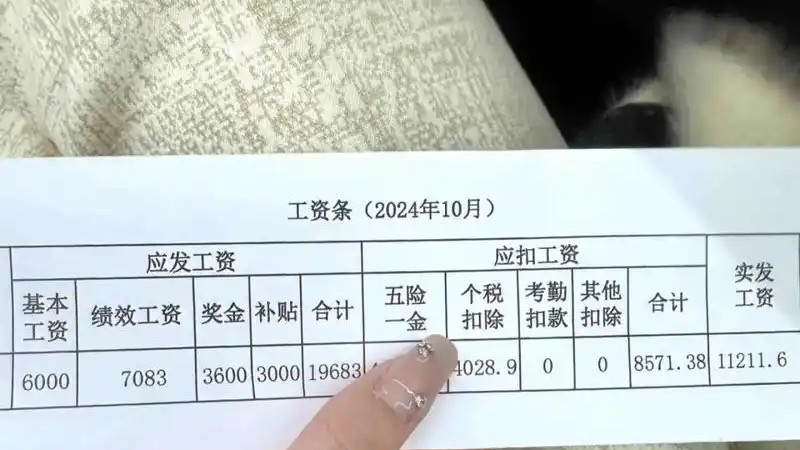 工资条（2024年10月）
应发工资 应扣工资 实发工资
基本工资 绩效工资 奖金 补贴 合计 五险一金 个税扣除 考勤扣款 其他扣除 合计
6000 7083 3600 3000 19683 4028.9 0 0 8571.38 11211.6